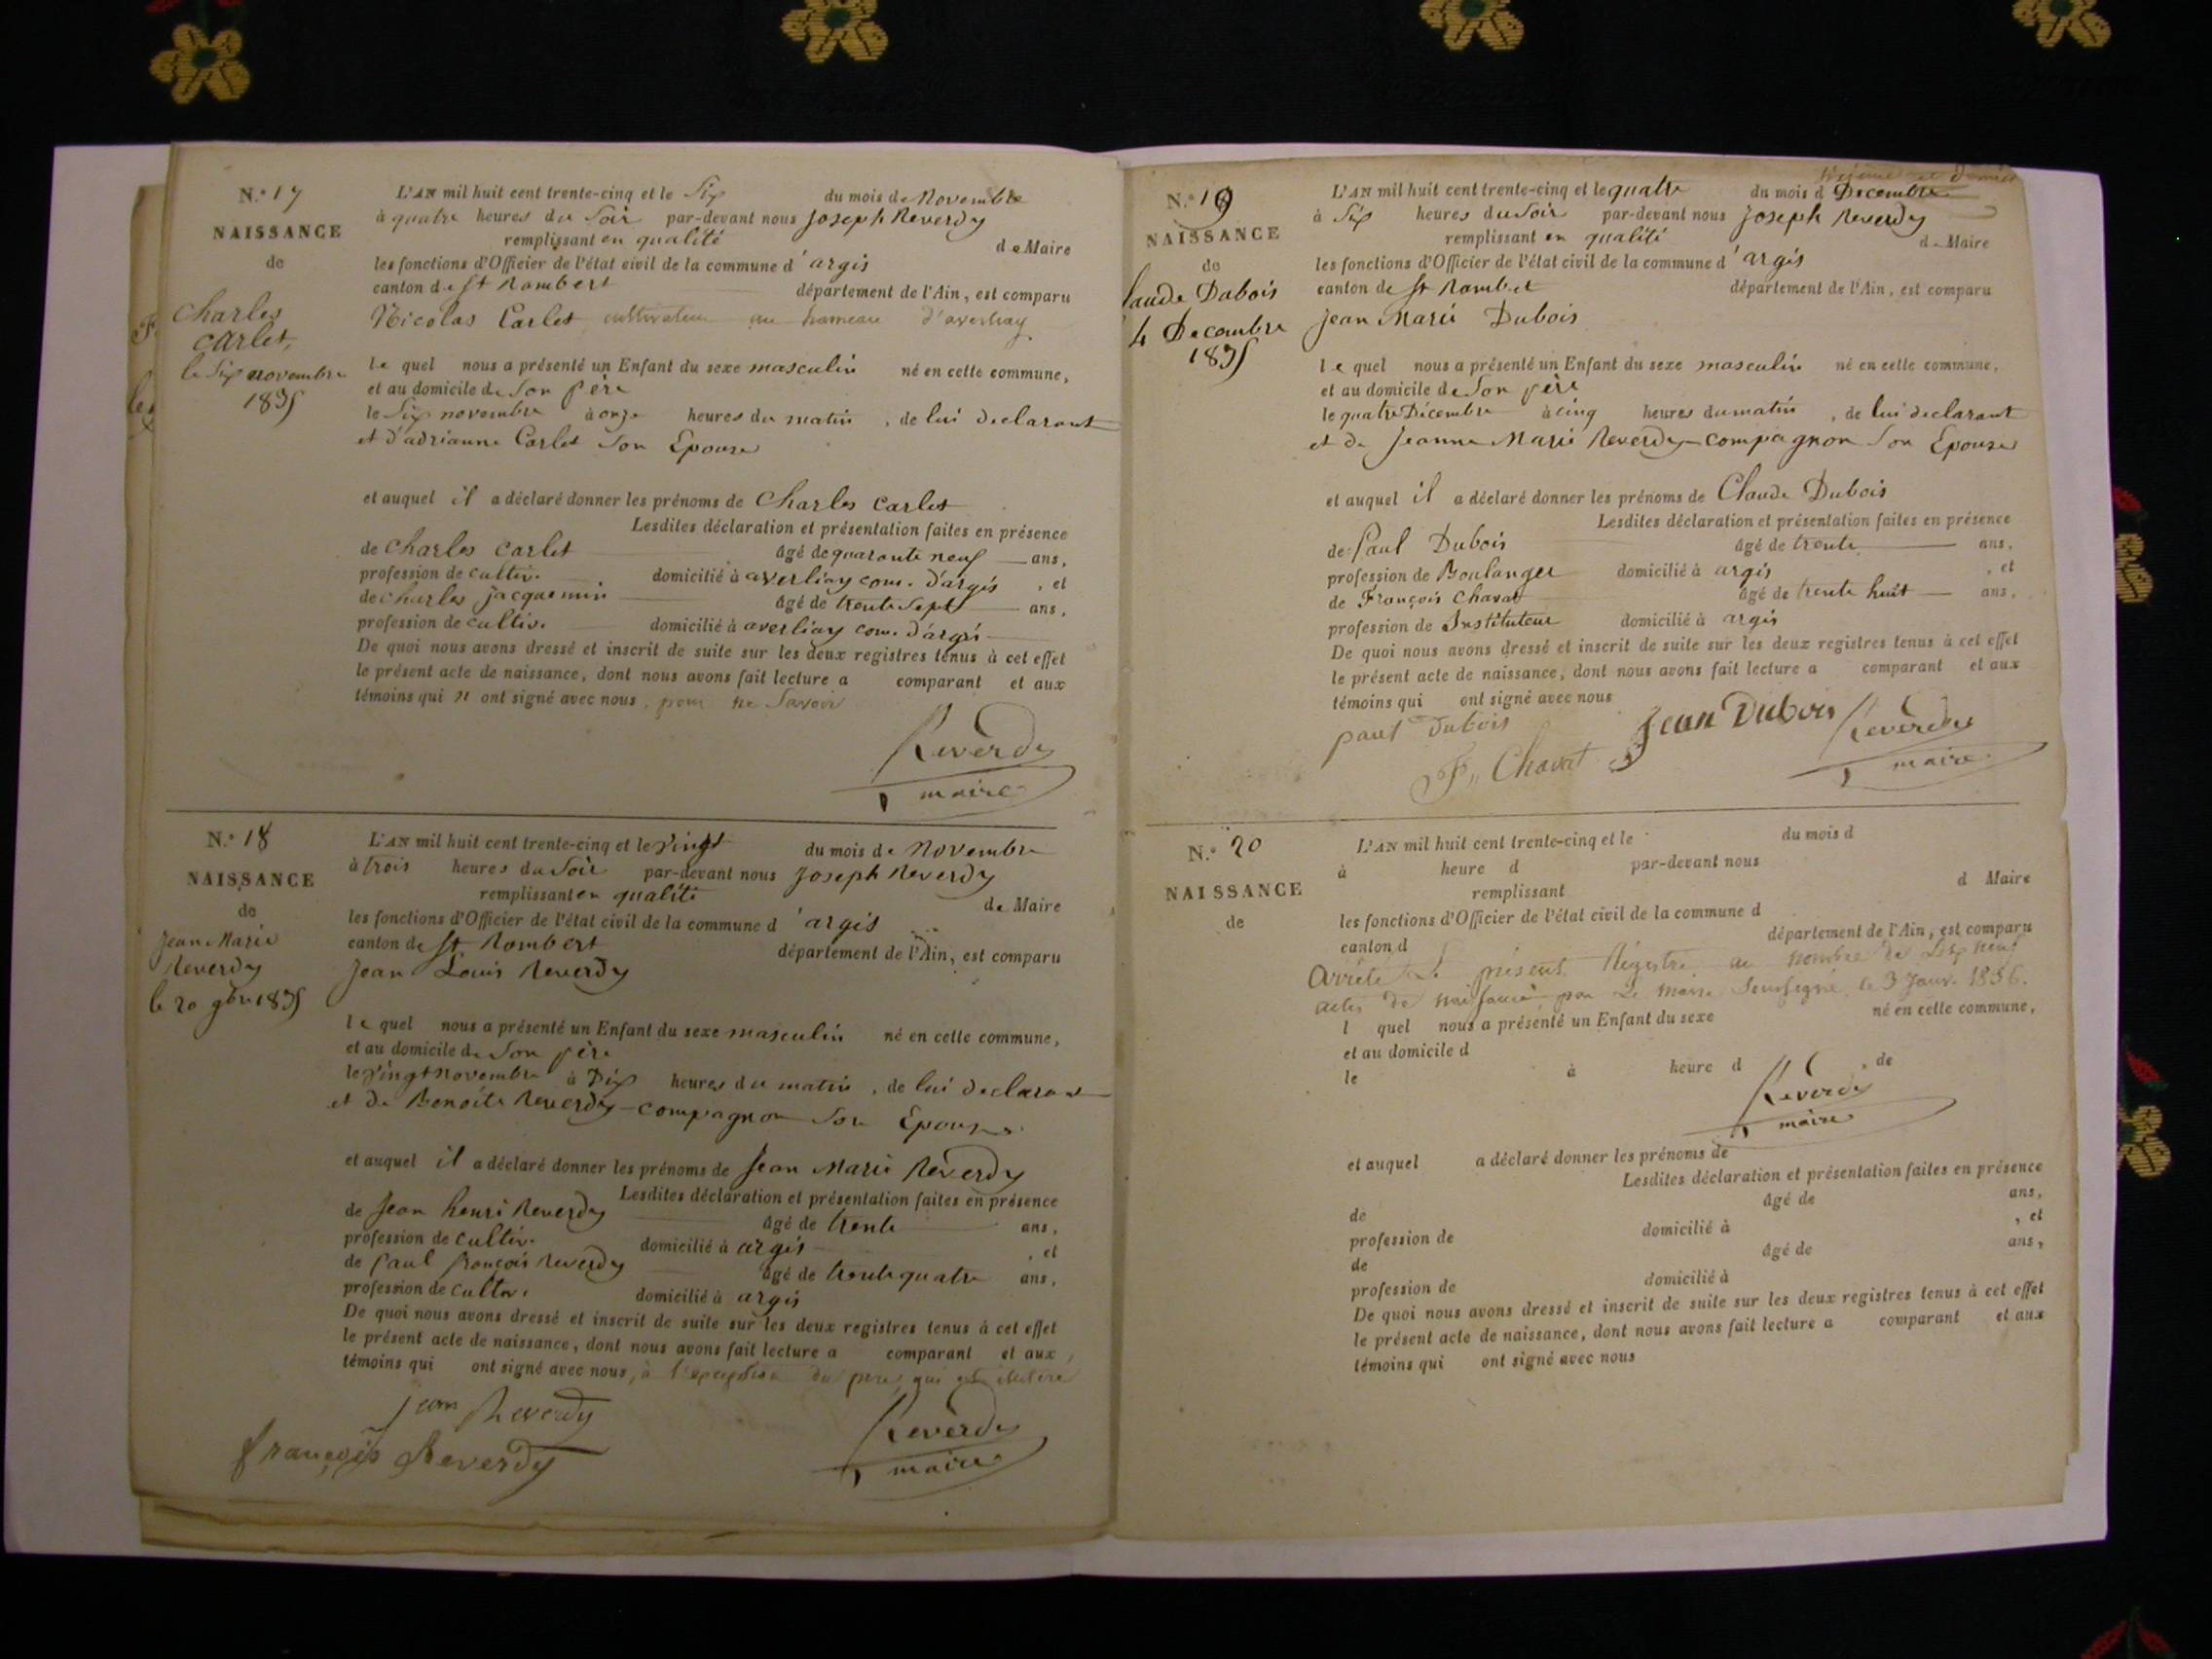 N.° 17
NAISSANCE
de
Charles
Carlet,
le Six novembre
1835
L'AN mil huit cent trente-cinq et le Six du mois de Novembre
à quatre heures du Soir par-devant nous Joseph Reverdy
remplissant en qualité de Maire
les fonctions d'Officier de l'état civil de la commune d'argis
canton de St Rambert département de l'Ain, est comparu
Nicolas Carlet cultivateur au hameau d'averliay
le quel nous a présenté un Enfant du sexe masculin né en cette commune,
et au domicile de Son père
le Six novembre à onze heures du matin, de lui declarant
et d'adrianne Carlet Son Epouse
et auquel il a déclaré donner les prénoms de Charles Carlet
Lesdites déclaration et présentation faites en présence
de Charles Carlet âgé de quarante neuf ans,
profession de cultiv. domicilié à averliay com. d'argis, et
de Charles jacquemin âgé de trente Sept ans,
profession de cultiv. domicilié à averliay com. d'argis
De quoi nous avons dressé et inscrit de suite sur les deux registres tenus à cet effet
le présent acte de naissance, dont nous avons fait lecture a comparant et aux
témoins qui n ont signé avec nous, pour ne Savoir
Reverdy
maire
N.° 18
NAISSANCE
de
Jean Marie
Reverdy
le 20 9bre 1835
L'AN mil huit cent trente-cinq et le vingt du mois de Novembre
à trois heures du Soir par-devant nous Joseph Reverdy
remplissant en qualité de Maire
les fonctions d'Officier de l'état civil de la commune d'argis
canton de St Rambert département de l'Ain, est comparu
Jean Louis Reverdy
le quel nous a présenté un Enfant du sexe masculin né en cette commune,
et au domicile de Son père
le vingt novembre à Dix heures du matin, de lui declarant
et de Benoite Reverdy-compagnon Son Epouse
et auquel il a déclaré donner les prénoms de Jean Marie Reverdy
Lesdites déclaration et présentation faites en présence
de Jean henri Reverdy âgé de trente ans,
profession de cultiv. domicilié à argis, et
de Paul françois Reverdy âgé de trente quatre ans,
profession de cultiv. domicilié à argis
De quoi nous avons dressé et inscrit de suite sur les deux registres tenus à cet effet
le présent acte de naissance, dont nous avons fait lecture a comparant et aux
témoins qui ont signé avec nous, à l'exception du père qui est
jean Reverdy
françois Reverdy
Reverdy
maire
et dernier
N.° 19
NAISSANCE
de
laude Dubois
4 Decembre
1835
L'AN mil huit cent trente-cinq et le quatre du mois d Decembre
à Six heures du Soir par-devant nous Joseph Reverdy
remplissant en qualité de Maire
les fonctions d'Officier de l'état civil de la commune d'argis
canton de St Rambert département de l'Ain, est comparu
Jean Marie Dubois
le quel nous a présenté un Enfant du sexe masculin né en cette commune,
et au domicile de Son père
le quatre Décembre à cinq heures du matin, de lui declarant
et de Jeanne Marie Reverdy-compagnon Son Epouse
et auquel il a déclaré donner les prénoms de Claude Dubois
Lesdites déclaration et présentation faites en présence
de Paul Dubois âgé de trente ans,
profession de Boulanger domicilié à argis, et
de François Chavat âgé de trente huit ans,
profession de Instituteur domicilié à argis
De quoi nous avons dressé et inscrit de suite sur les deux registres tenus à cet effet
le présent acte de naissance, dont nous avons fait lecture a comparant et aux
témoins qui ont signé avec nous
paul Dubois
Jean Dubois
F. Chavat
Reverdy
maire
N.° 20
NAISSANCE
de
L'AN mil huit cent trente-cinq et le du mois d
à heure d par-devant nous
remplissant d Maire
les fonctions d'Officier de l'état civil de la commune d
canton d département de l'Ain, est comparu
Arrêté Le présent Régistre au nombre de Dix neuf
actes de naissance, par Le maire Soussigné le 3 Janv. 1836.
l quel nous a présenté un Enfant du sexe né en cette commune,
et au domicile d
le à heure d, de
Reverdy
maire
et auquel a déclaré donner les prénoms de
Lesdites déclaration et présentation faites en présence
de âgé de ans,
profession de domicilié à, et
de âgé de ans,
profession de domicilié à
De quoi nous avons dressé et inscrit de suite sur les deux registres tenus à cet effet
le présent acte de naissance, dont nous avons fait lecture a comparant et aux
témoins qui ont signé avec nous